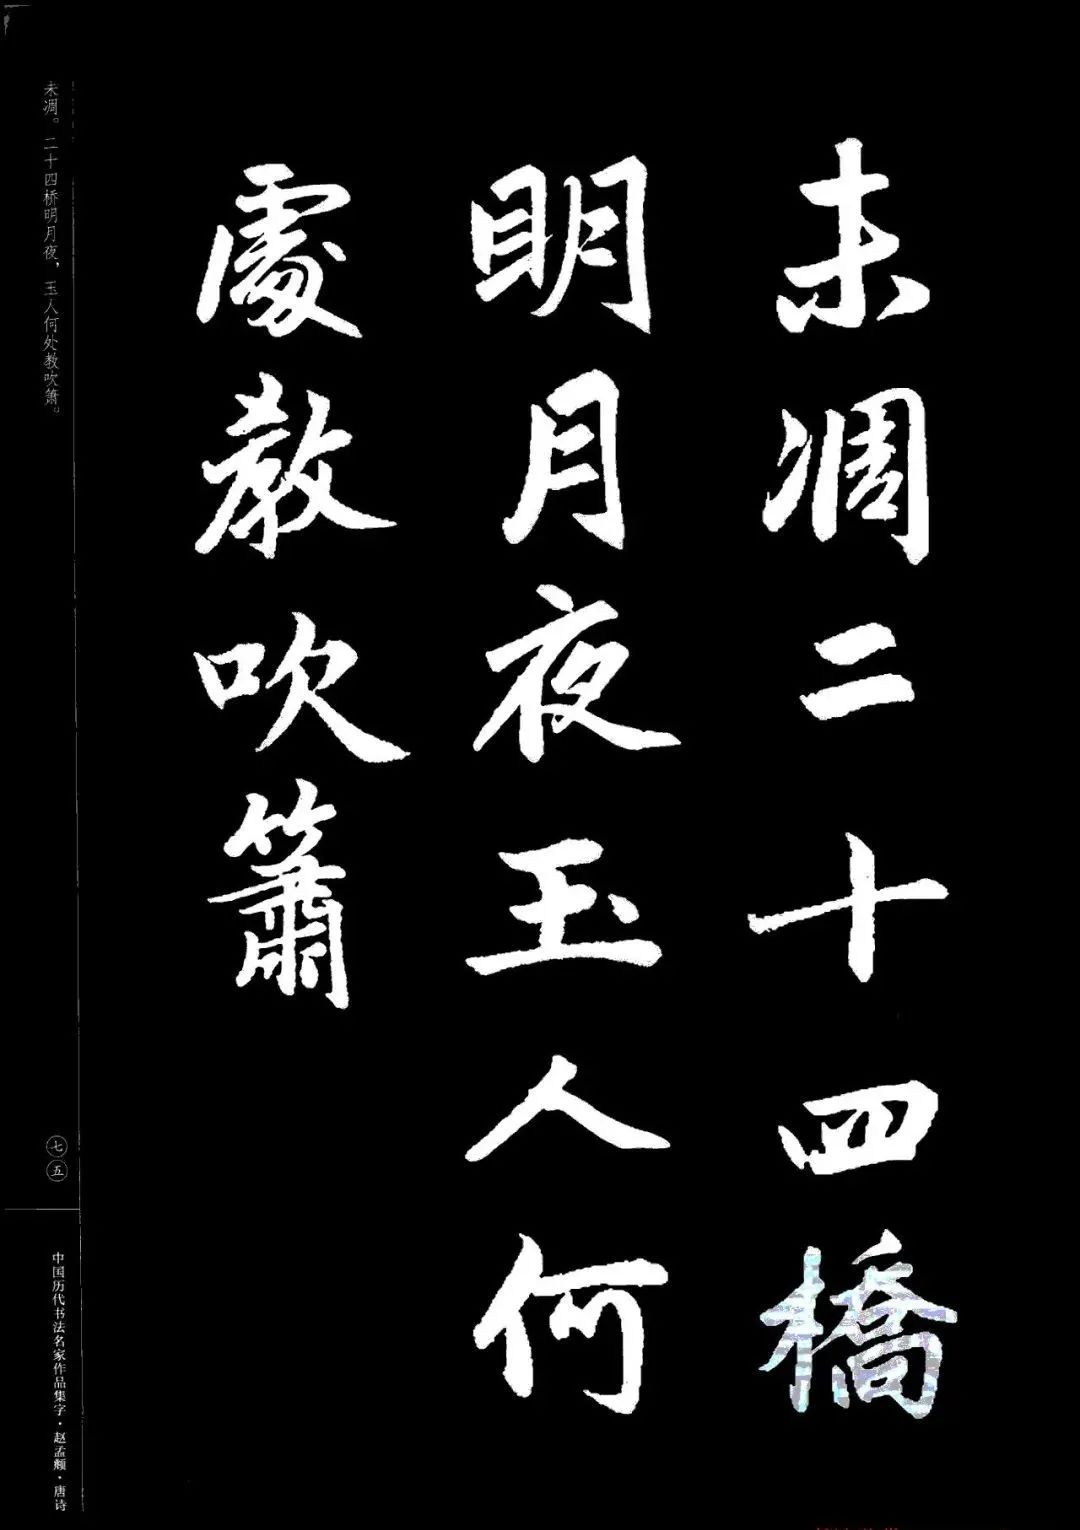 未凋二十四橋
明月夜玉人何
處教吹簫
未凋。二十四桥明月夜，玉人何处教吹箫。
七五
中国历代书法名家作品集字·赵孟頫·唐诗